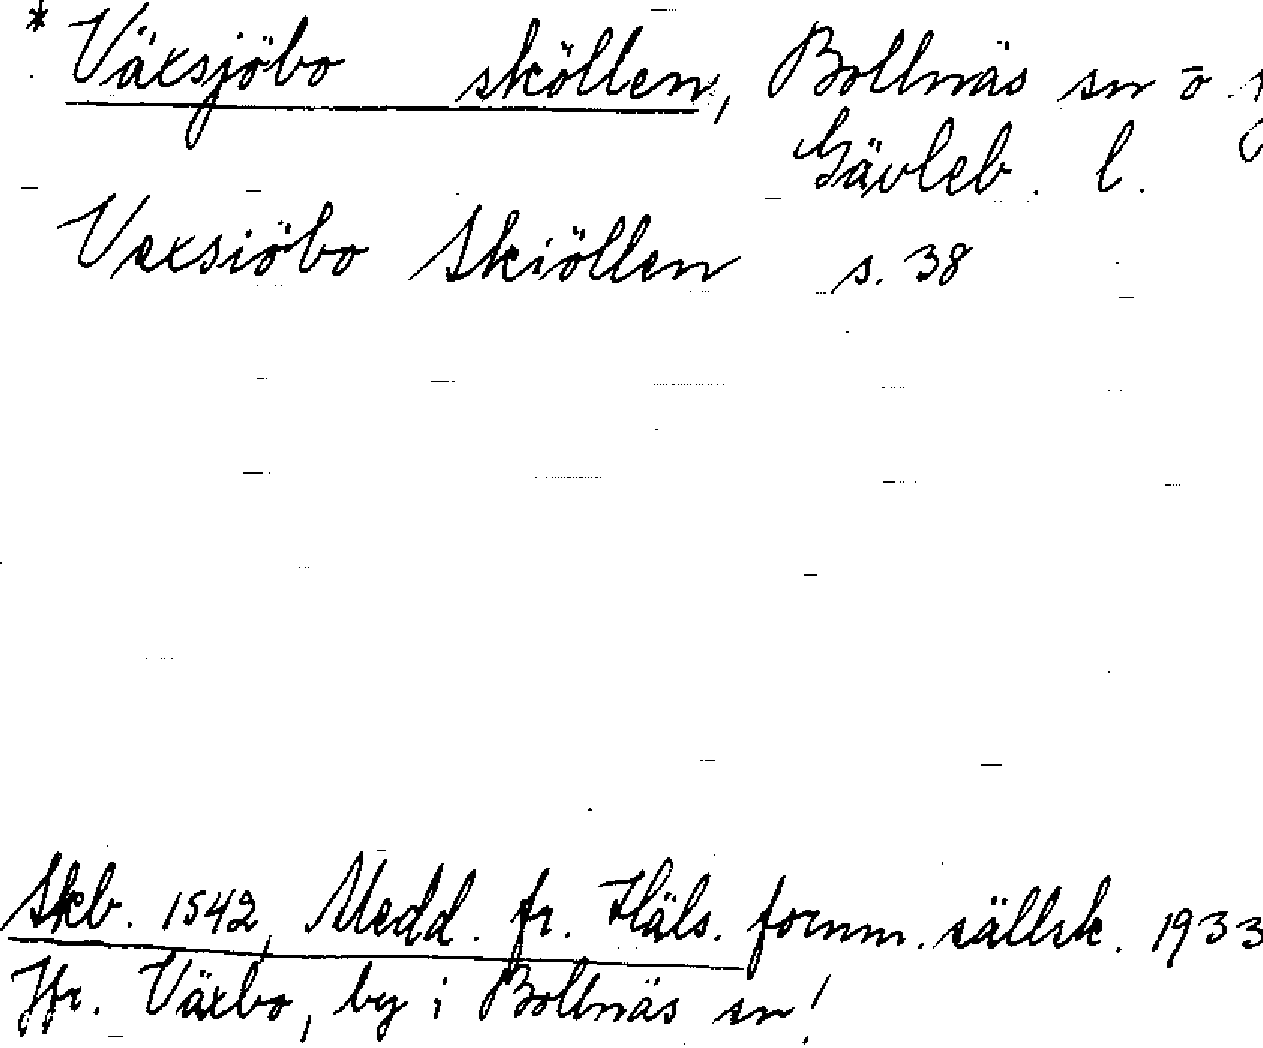 * Växsjöbo sköllen, Bollnäs sn o
Gävleb. l.
Vexsiöbo Skiöllen s. 38
Skb. 1542, Medd. fr. Häls. fornm. sällsk. 1933
Jfr. Växbo, by i Bollnäs sn!